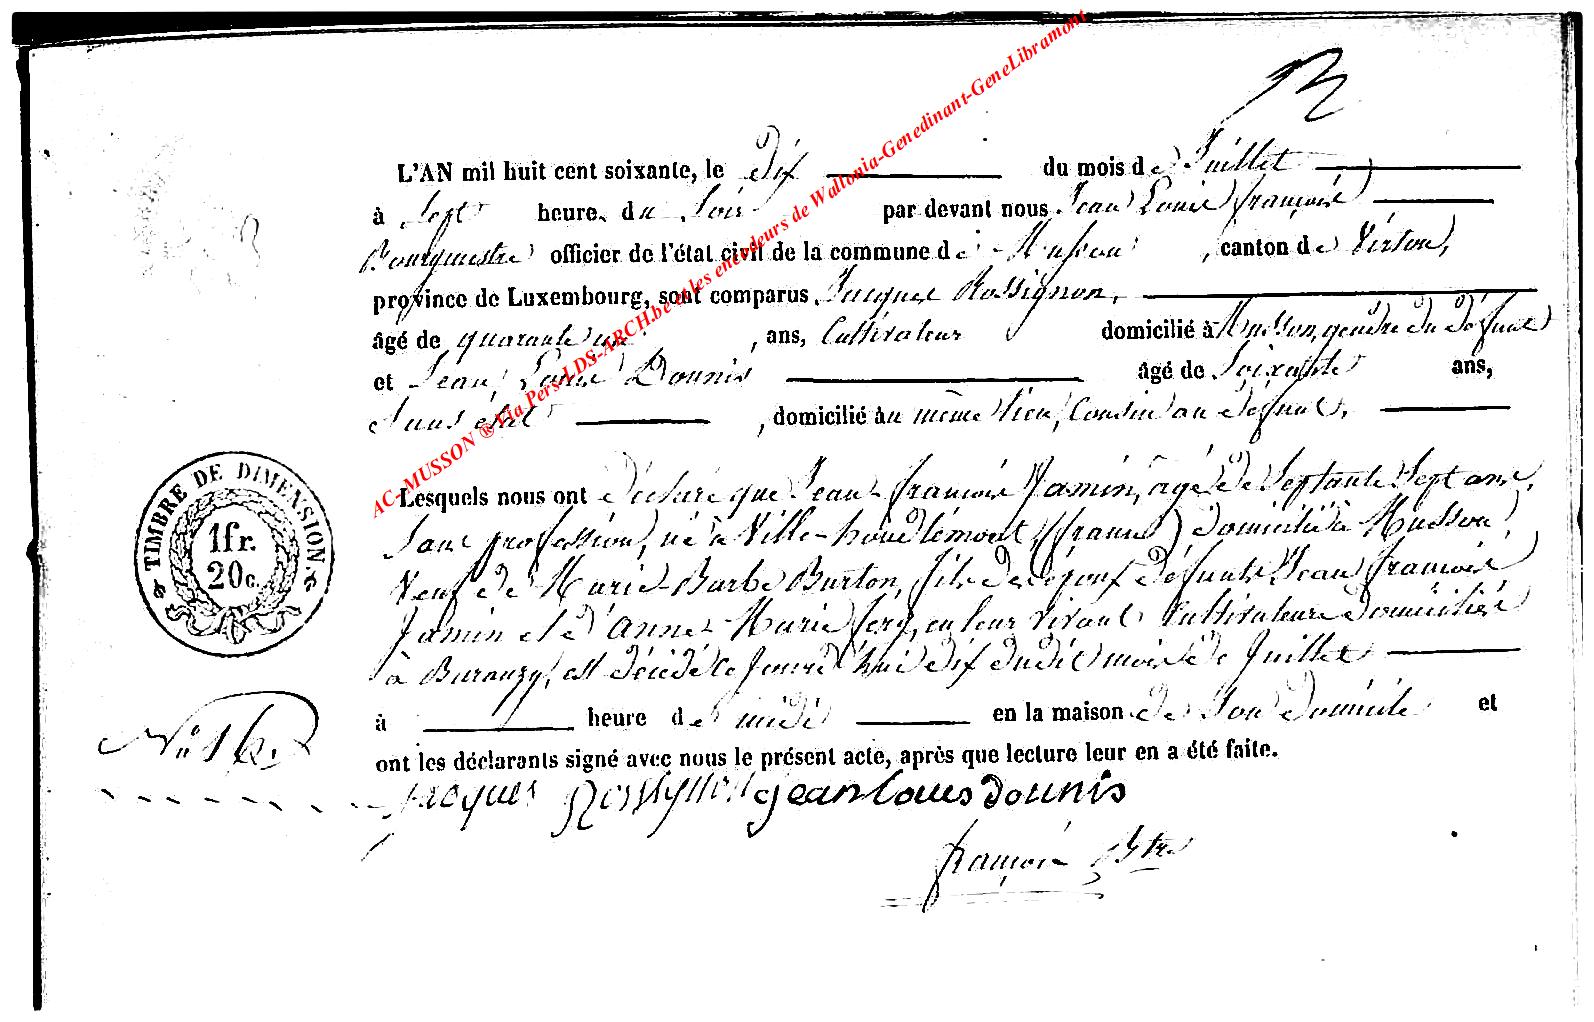 L'AN mil huit cent soixante, le dix du mois de Juillet
à Sept heures du Soir par devant nous Jean Louis françois
Bourgmestre officier de l'état civil de la commune de Musson, canton de Virton,
province de Luxembourg, sont comparus Jacques Rossignon,
âgé de quarante un ans, Cultivateur domicilié à Musson, gendre du défunt
et Jean Louis Dounis âgé de Soixante ans,
Sans état, domicilié au même lieu, Cousin au défunt,
Lesquels nous ont déclaré que Jean françois Jamin, âgé de Septante Sept ans,
Sans profession, né à Ville-houdlémont (france) domicilié à Musson,
Veuf de Marie Barbe Burton, fils des époux défunts Jean françois
Jamin et d'Anne-Marie, en leur vivant Cultivateurs domiciliés
à Baranzy, est décédé ce Jourd'hui dix dudit mois de Juillet
à heure de midi en la maison de Son domicile et
ont les déclarants signé avec nous le présent acte, après que lecture leur en a été faite.
Jacques Rossignon Jean louis dounis
françois Bgtre
TIMBRE DE DIMENSION.
1fr.
20c.
AC-MUSSON ® Via Pers-LDS-ARCH.be et les encodeurs de Wallonia-Genedinant-GeneLibramont